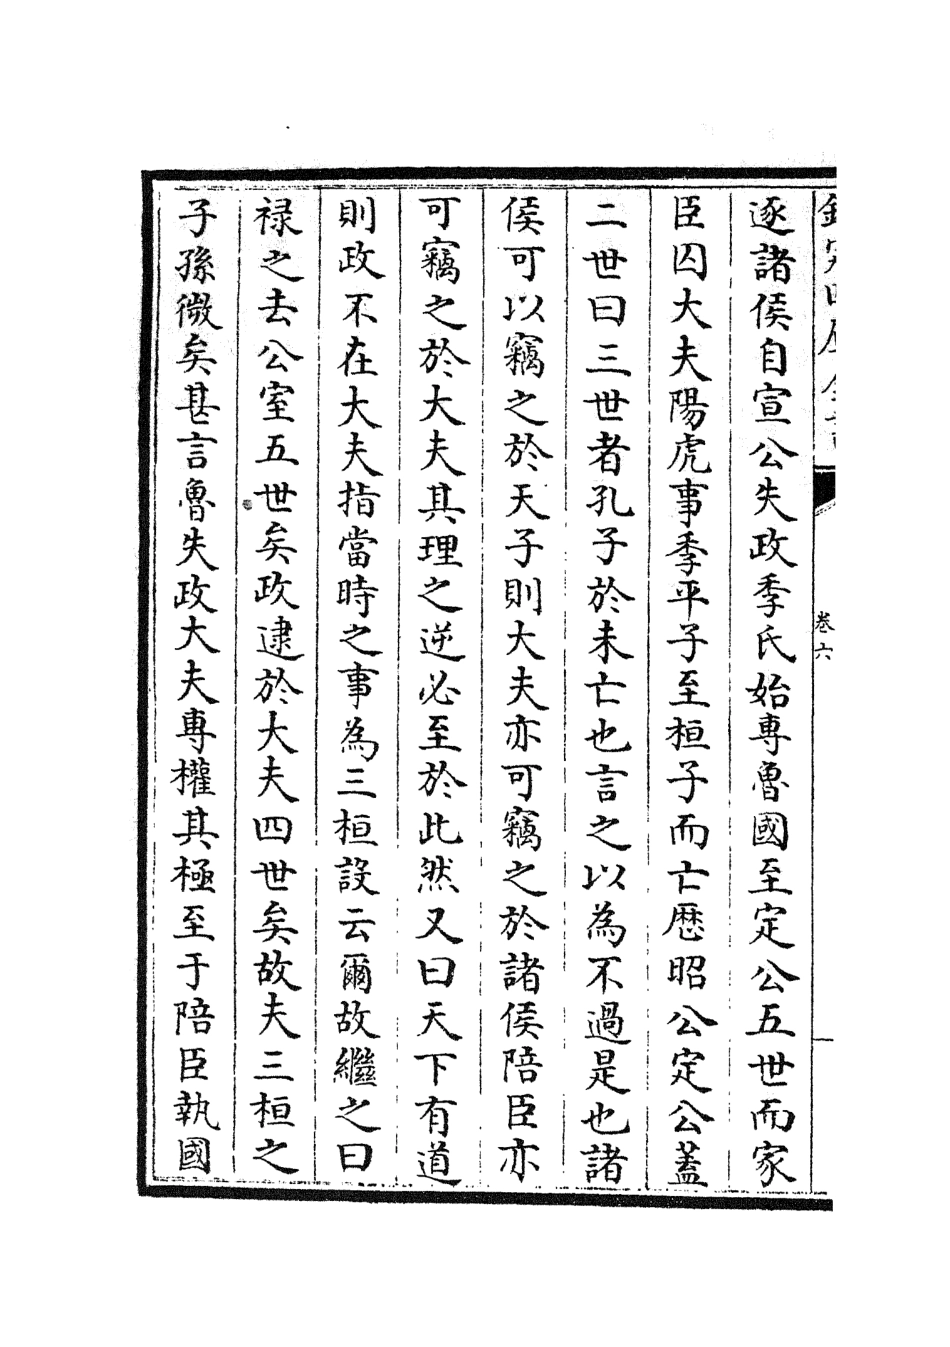 欽定四庫全書
卷六
逐諸侯自宣公失政季氏始專魯國至定公五世而家
臣囚大夫陽虎事季平子至桓子而亡歴昭公定公蓋
二世曰三世者孔子於未亡也言之以為不過是也諸
侯可以竊之於天子則大夫亦可竊之於諸侯陪臣亦
可竊之於大夫其理之逆必至於此然又曰天下有道
則政不在大夫指當時之事為三桓設云爾故繼之曰
禄之去公室五世矣政逮於大夫四世矣故夫三桓之
子孫微矣甚言魯失政大夫專權其極至于陪臣執國